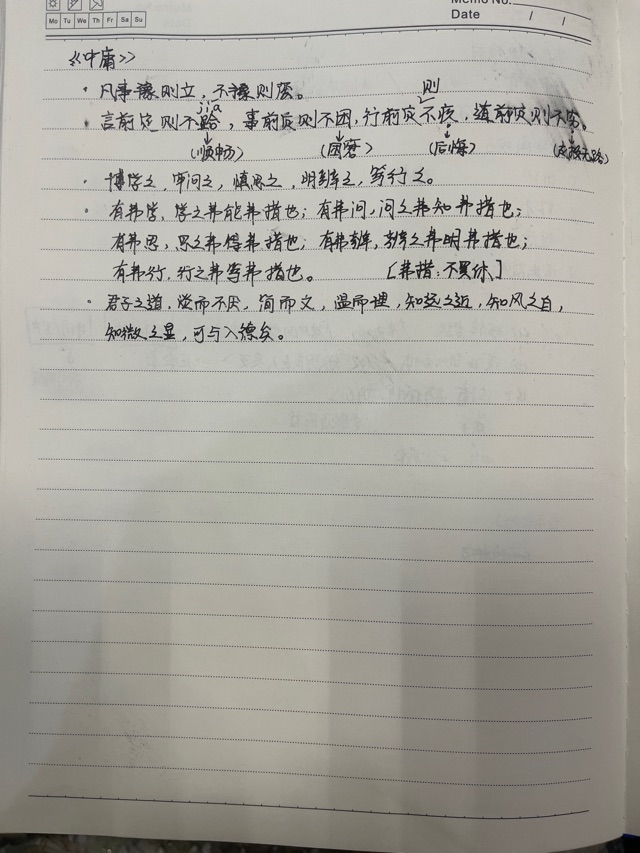 Memo No.
Mo Tu We Th Fr Sa Su
Date / /
《中庸》
· 凡事豫则立，不豫则废。
jiá 则
· 言前定则不跲，事前定则不困，行前定不疚，道前定则不穷。
(顺畅) (困窘) (后悔)
· 博学之，审问之，慎思之，明辨之，笃行之。
· 有弗学，学之弗能弗措也；有弗问，问之弗知弗措也；
有弗思，思之弗得弗措也；有弗辨，辨之弗明弗措也；
有弗行，行之弗笃弗措也。 [弗措：不罢休]
· 君子之道，淡而不厌，简而文，温而理，知远之近，知风之自，
知微之显，可与入德矣。